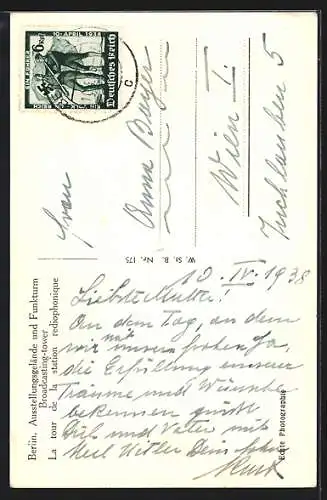 10. APRIL 1938
EIN FÜHRER
EIN VOLK EIN REICH
6
Deutsches Reich
C
Frau
Anna Berger
Wien I.
Tuchlauben 5
W. St. B. Nr. 175
Berlin. Ausstellungsgelände und Funkturm
Broadcasting-tower
La tour de la station rediophonique
10. IV. 1938
Liebste Mutter!
An dem Tag, an dem
wir mit unserem frohen Ja,
die Erfüllung unserer
Träume und Wünsche
bekennen grüßt
Dich und Vater mit
Heil Hitler Dein Sohn
Kurt
Echte Photographie